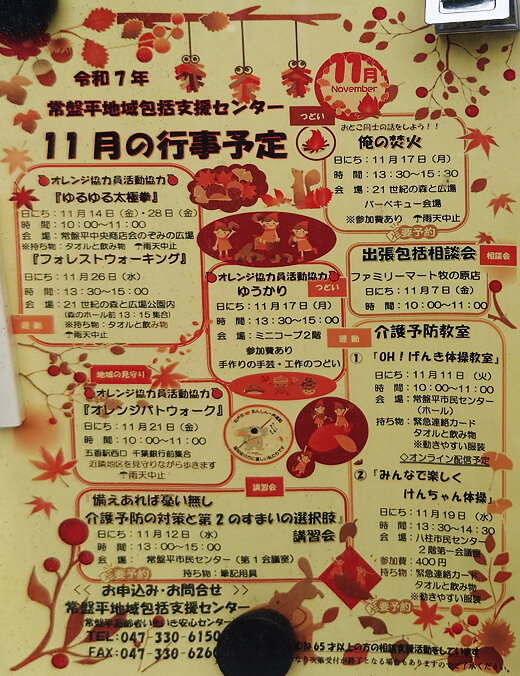 令和７年
常盤平地域包括支援センター
11月の行事予定
11月
November
オレンジ協力員活動協力
『ゆるゆる太極拳』
日にち：11月14日（金）・28日（金）
時 間：10：00～11：00
会 場：常盤平中央商店会のぞみの広場
※持ち物：タオルと飲み物 雨天中止
『フォレストウォーキング』
日にち：11月26日（水）
時 間：13：30～15：00
会 場：21世紀の森と広場公園内
（森のホール前13：15集合）
※持ち物：タオルと飲み物
雨天中止
運動
つどい
おとこ同士の話をしよう！！
俺の焚火
日にち：11月17日（月）
時 間：13：30～15：30
会 場：21世紀の森と広場
バーベキュー会場
※参加費あり 雨天中止
要予約
オレンジ協力員活動協力
ゆうかり
つどい
日にち：11月17日（月）
時 間：13：30～15:00
会 場：ミニコープ２階
参加費あり
手作りの手芸・工作のつどい
出張包括相談会
相談会
ファミリーマート牧の原店
日にち：11月7日（金）
時 間：10：00～11:00
地域の見守り
オレンジ協力員活動協力
『オレンジパトウォーク』
日にち：11月21日（金）
時 間：10：00～11：00
五香駅西口 千葉銀行前集合
近隣地区を見守りながら歩きます
雨天中止
運動
介護予防教室
① 「OH！げんき体操教室」
日にち：11月11日（火）
時 間：10：00～11：00
会 場：常盤平市民センター
（ホール）
持ち物：緊急連絡カード
タオルと飲み物
※動きやすい服装
◇オンライン配信予定
② 「みんなで楽しく
けんちゃん体操」
日にち：11月19日（水）
時 間：13：30～14：30
会 場：八柱市民センター
２階第一会議室
参加費：400円
持ち物：緊急連絡カード
タオルと飲み物
※動きやすい服装
要予約
講習会
備えあれば憂い無し
介護予防の対策と第２のすまいの選択肢』
講習会
日にち：11月12日（水）
時 間：13：00～15：00
会 場： 常盤平市民センター（第１会議室）
持ち物：筆記用具
要予約
＜＜ お申込み・お問合せ ＞＞
常盤平地域包括支援センター
常盤平高齢者いきいき安心センター
TEL：047-330-6150
FAX：047-330-626
65才以上の方の相談支援活動をしています
なり次第受付が終了となる場合もありますのでご了承ください。